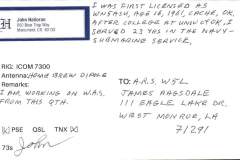 John Halloran
Monument, CO 80132
I WAS FIRST LICENSED AS
WN5AJH, AGE 16, 1961, CACHE, OK.
AFTER COLLEGE AT UNIV OF OK, I
SERVED 23 YRS IN THE NAVY-
SUBMARINE SERVICE.
RIG: ICOM 7300
Antenna: HOME BREW DIPOLE
Remarks:
I AM WORKING ON W.A.S.
FROM THIS QTH.
TO: A.R.S. W5L
JAMES RAGSDALE
111 EAGLE LAKE DR
WEST MONROE, LA
71291
[X] PSE QSL TNX [X]
73s John